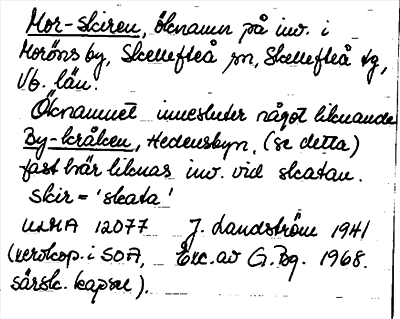 Mor-skiren, öknamn på inv. i
Moröns by, Skellefteå sn, Skellefteå tg,
Vb. län.
Öknamnet innesluter något liknande
By-kråken, Hedensbyn. (se detta)
fast här liknas inv. vid skatan.
skir = 'skata'
ULMA 12077 J. Landström 1941
(xerokop. i SOA, Exc. av G. Bg. 1968.
särsk. kapsel).